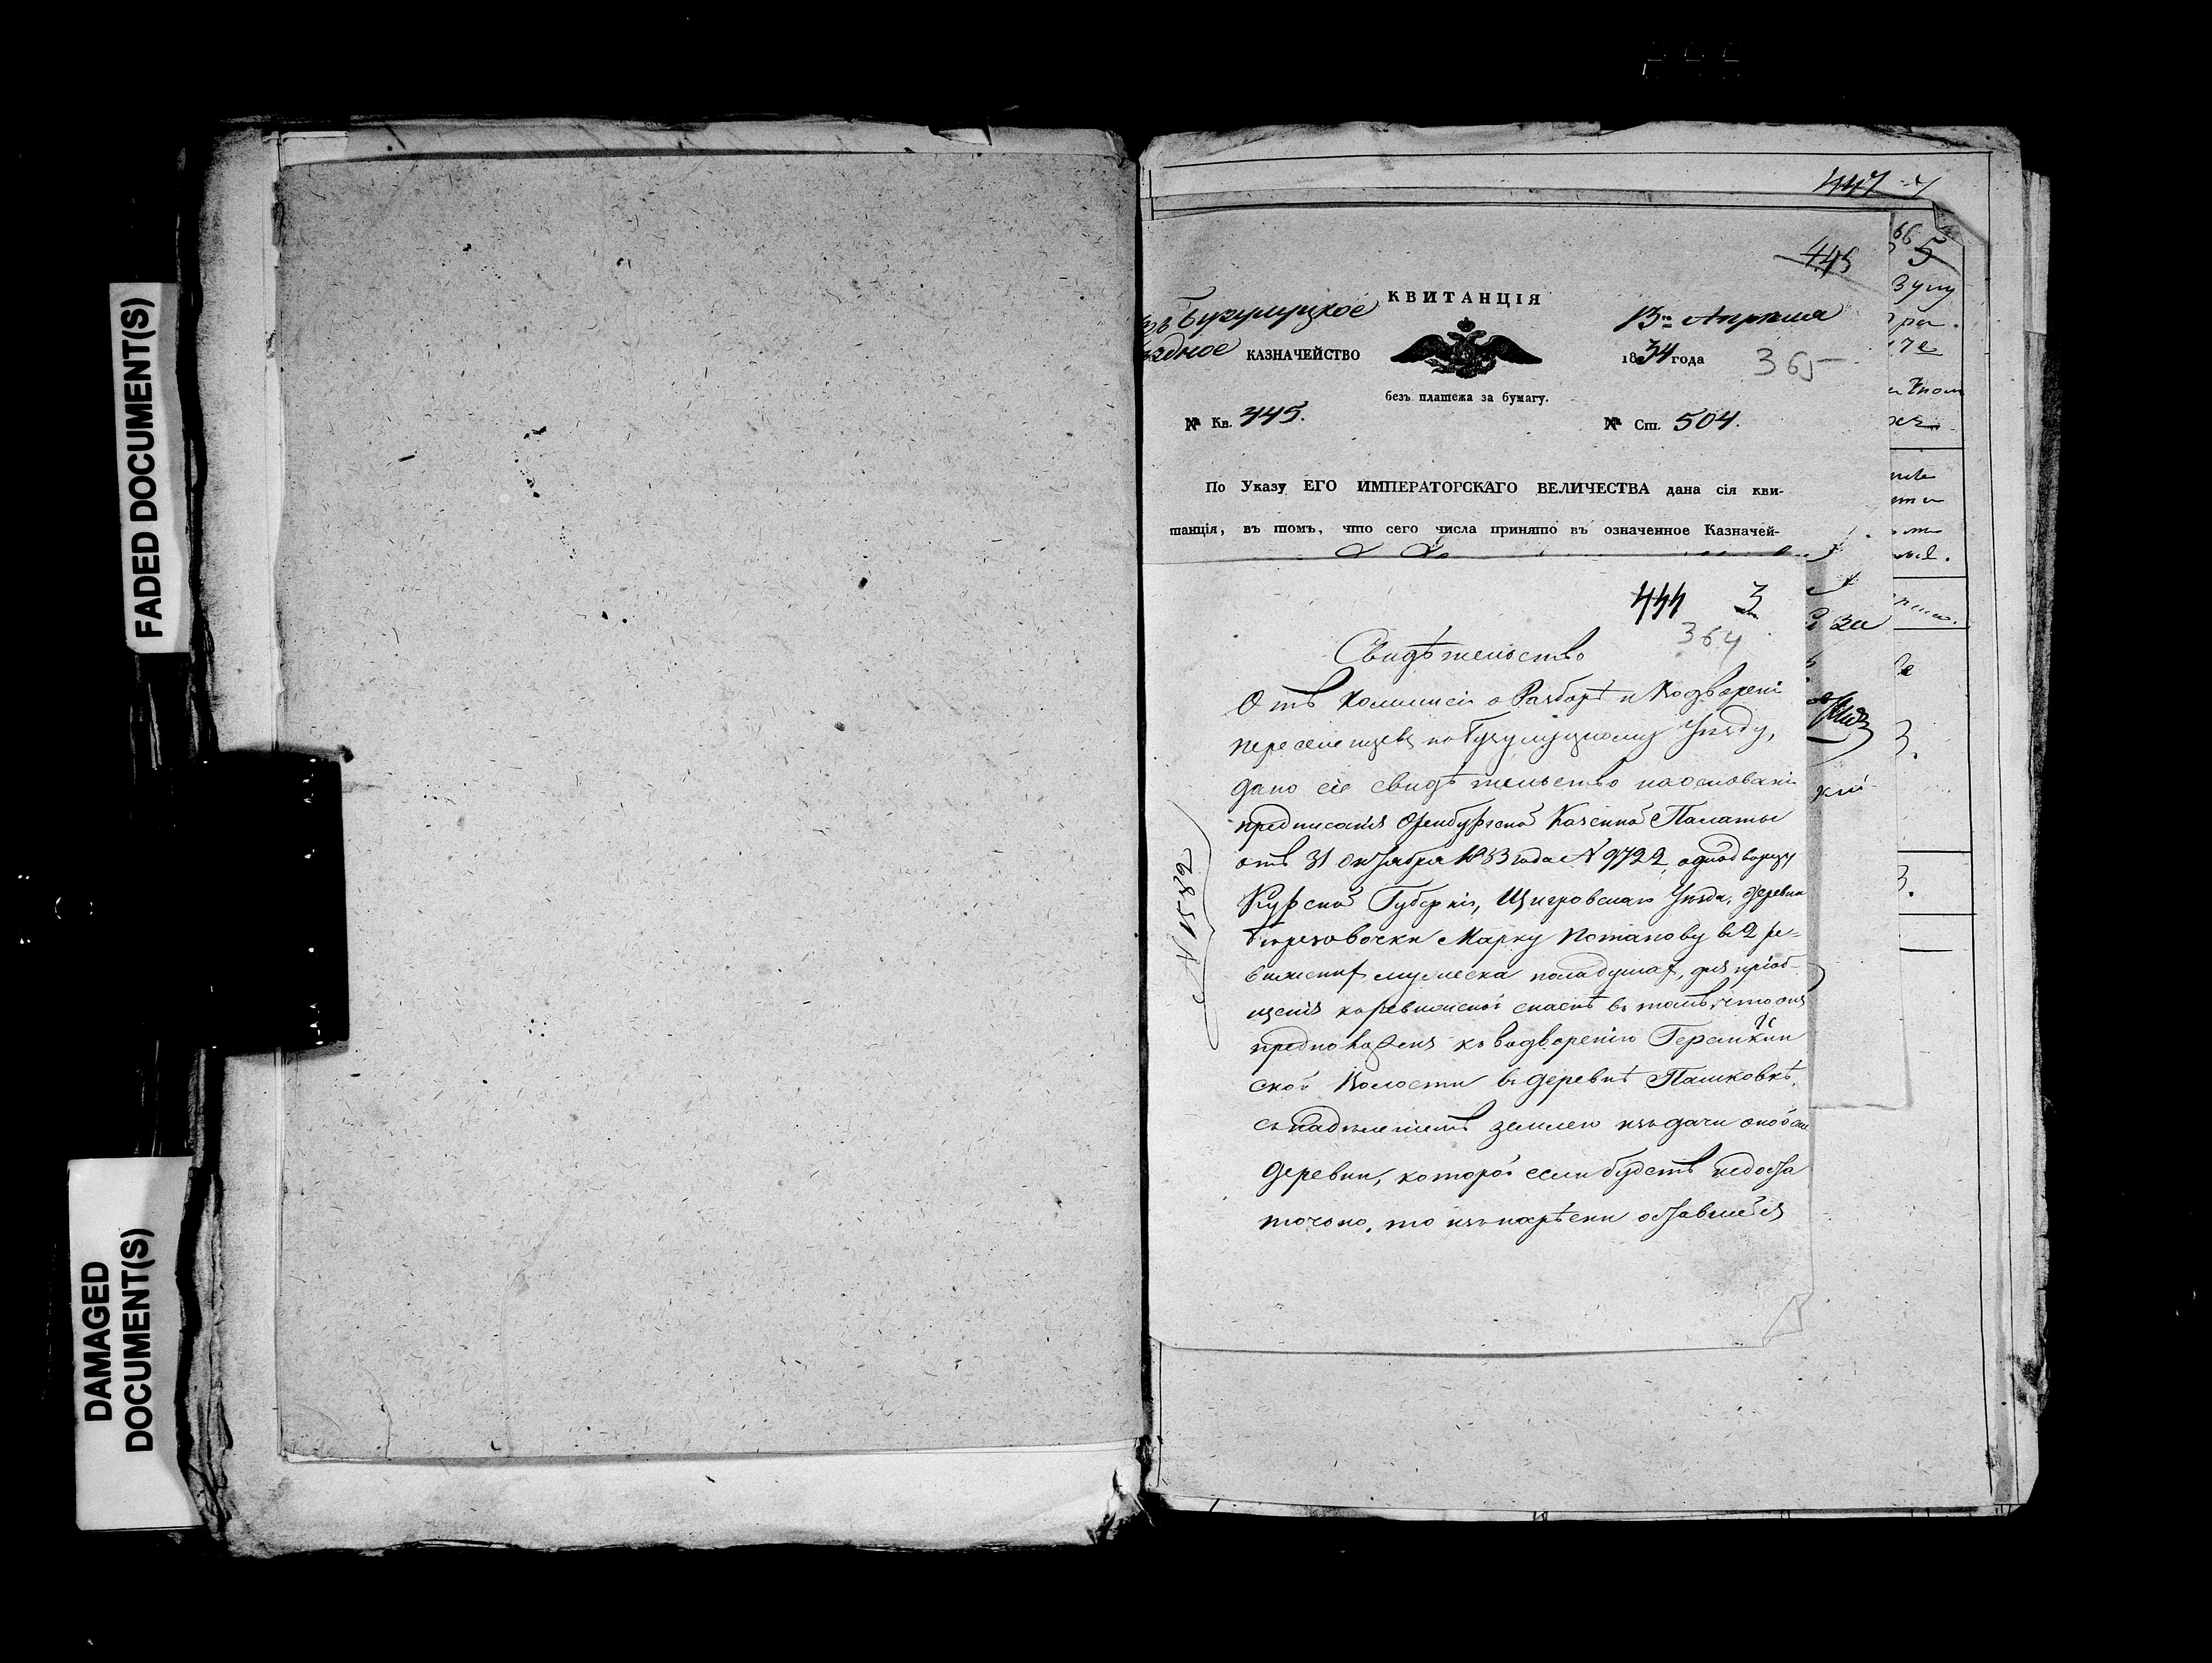 FADED DOCUMENT(S)
DAMAGED
DOCUMENT(S)
447
445
КВИТАНЦІЯ
Бузулуцкое
13го Апреля
КАЗНАЧЕЙСТВО
1834 года
365
безъ платежа за бумагу.
№ Кв. 445.
№ Ст. 504.
По Указу ЕГО ИМПЕРАТОРСКАГО ВЕЛИЧЕСТВА дана сія кви-
танція, въ томъ, что сего числа принято въ означенное Казначей-
444 3
364
Свидѣтельство
Отъ Коммисіи о Разборѣ и Водворенiи
переселенцевъ по Бузулуцкому Уѣзду,
дано сіе свидѣтельство наосновани
предписанія Оренбургской Казенной Палаты
отъ 31 октября 1833 года № 9722, однодворцу
Курской Губерніи, Щигровскаго Уѣзда, деревни
Березовочки Марку Потапову въ 2 ре-
вижскихъ мужеска пола душах, для приоб-
щенія къ ревижской скаскѣ въ томъ, что онъ
предположенъ къ водворенію Герасимкин
ской Волости въ деревнѣ Пашковкѣ,
съ надѣленіемъ землею изъ дачи оной
деревни, которой если будетъ недоста
точно, то изъ нарѣски оставшейся